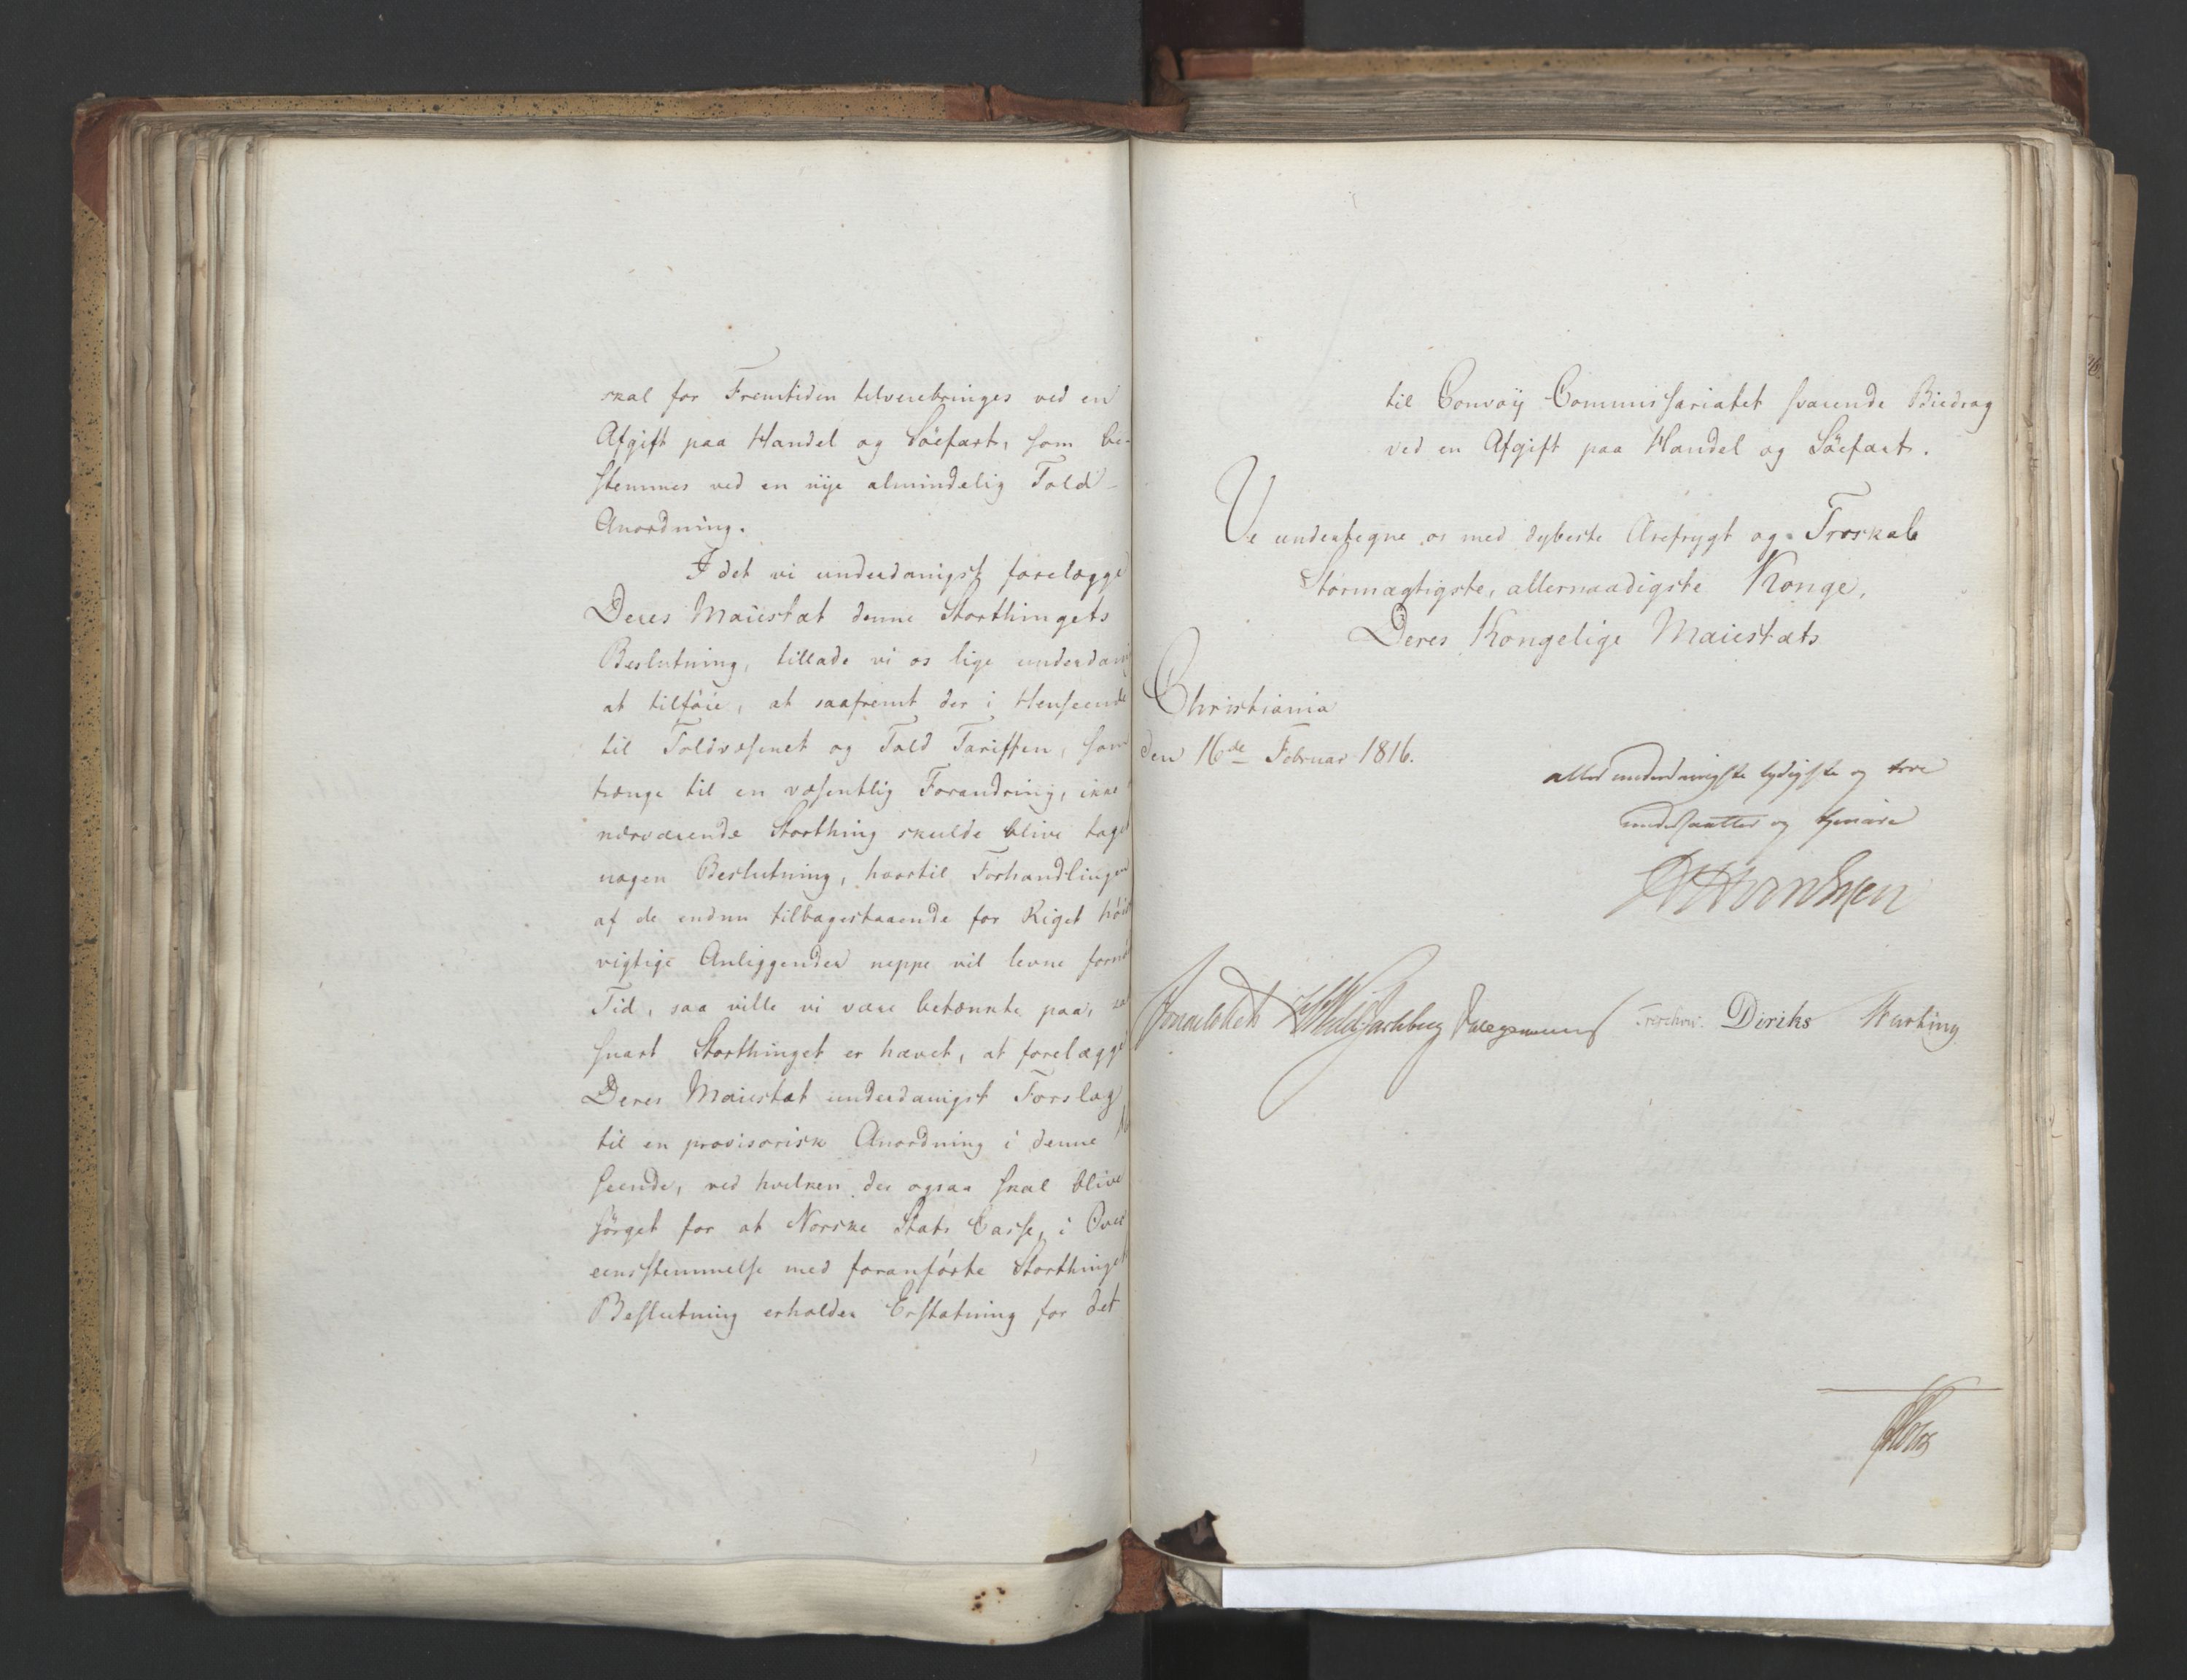 skal for Fremtiden tilveiebringes ved en
Afgift paa Handel og Söefart, som be-
stemmes ved en nye almindelig Told-
Anordning.
I det vi underdanigst forelægge
Deres Maiestæt denne Storthingets
Beslutning, tillade vi os lige underdani
at tilföie, at saafremt der i Henseende
til Toldvæsenet og Told Tariffen, som
trænge til en væsentlig Forandring, ikke
nærværende Storthing skulde blive taget
nogen Beslutning, hvortil Forhandlingen
af de endnu tilbagestaaende for Riget höist
vigtige Anliggender neppe vil levne forn
Tid, saa ville vi være betænkte paa, saa
snart Storthinget er hævet, at forelægge
Deres Maiestæt underdanigst Forslag
til en provisorisk Anordning i denne
seende, ved hvilken der ogsaa skal blive
sörget for at Norske Stats Casse, i Over
eensstemmelse med foranförte Storthinget
Beslutning erholder Erstatning for det
til Convoÿ Commissariatet svarende Biedrag
ved en Afgift paa Handel og Söefart.
Vi undertegne os med dybeste Ærefrygt og Troskab
Stormægtigste, allernaadigste Konge,
Deres Kongelige Maiestæts
Christiania
den 16de Februar 1816.
allerunderdanigste lydigste og troe
undersaatter og tjenere
Sommerhielm Wedel Jarlsberg Treschow. Diriks